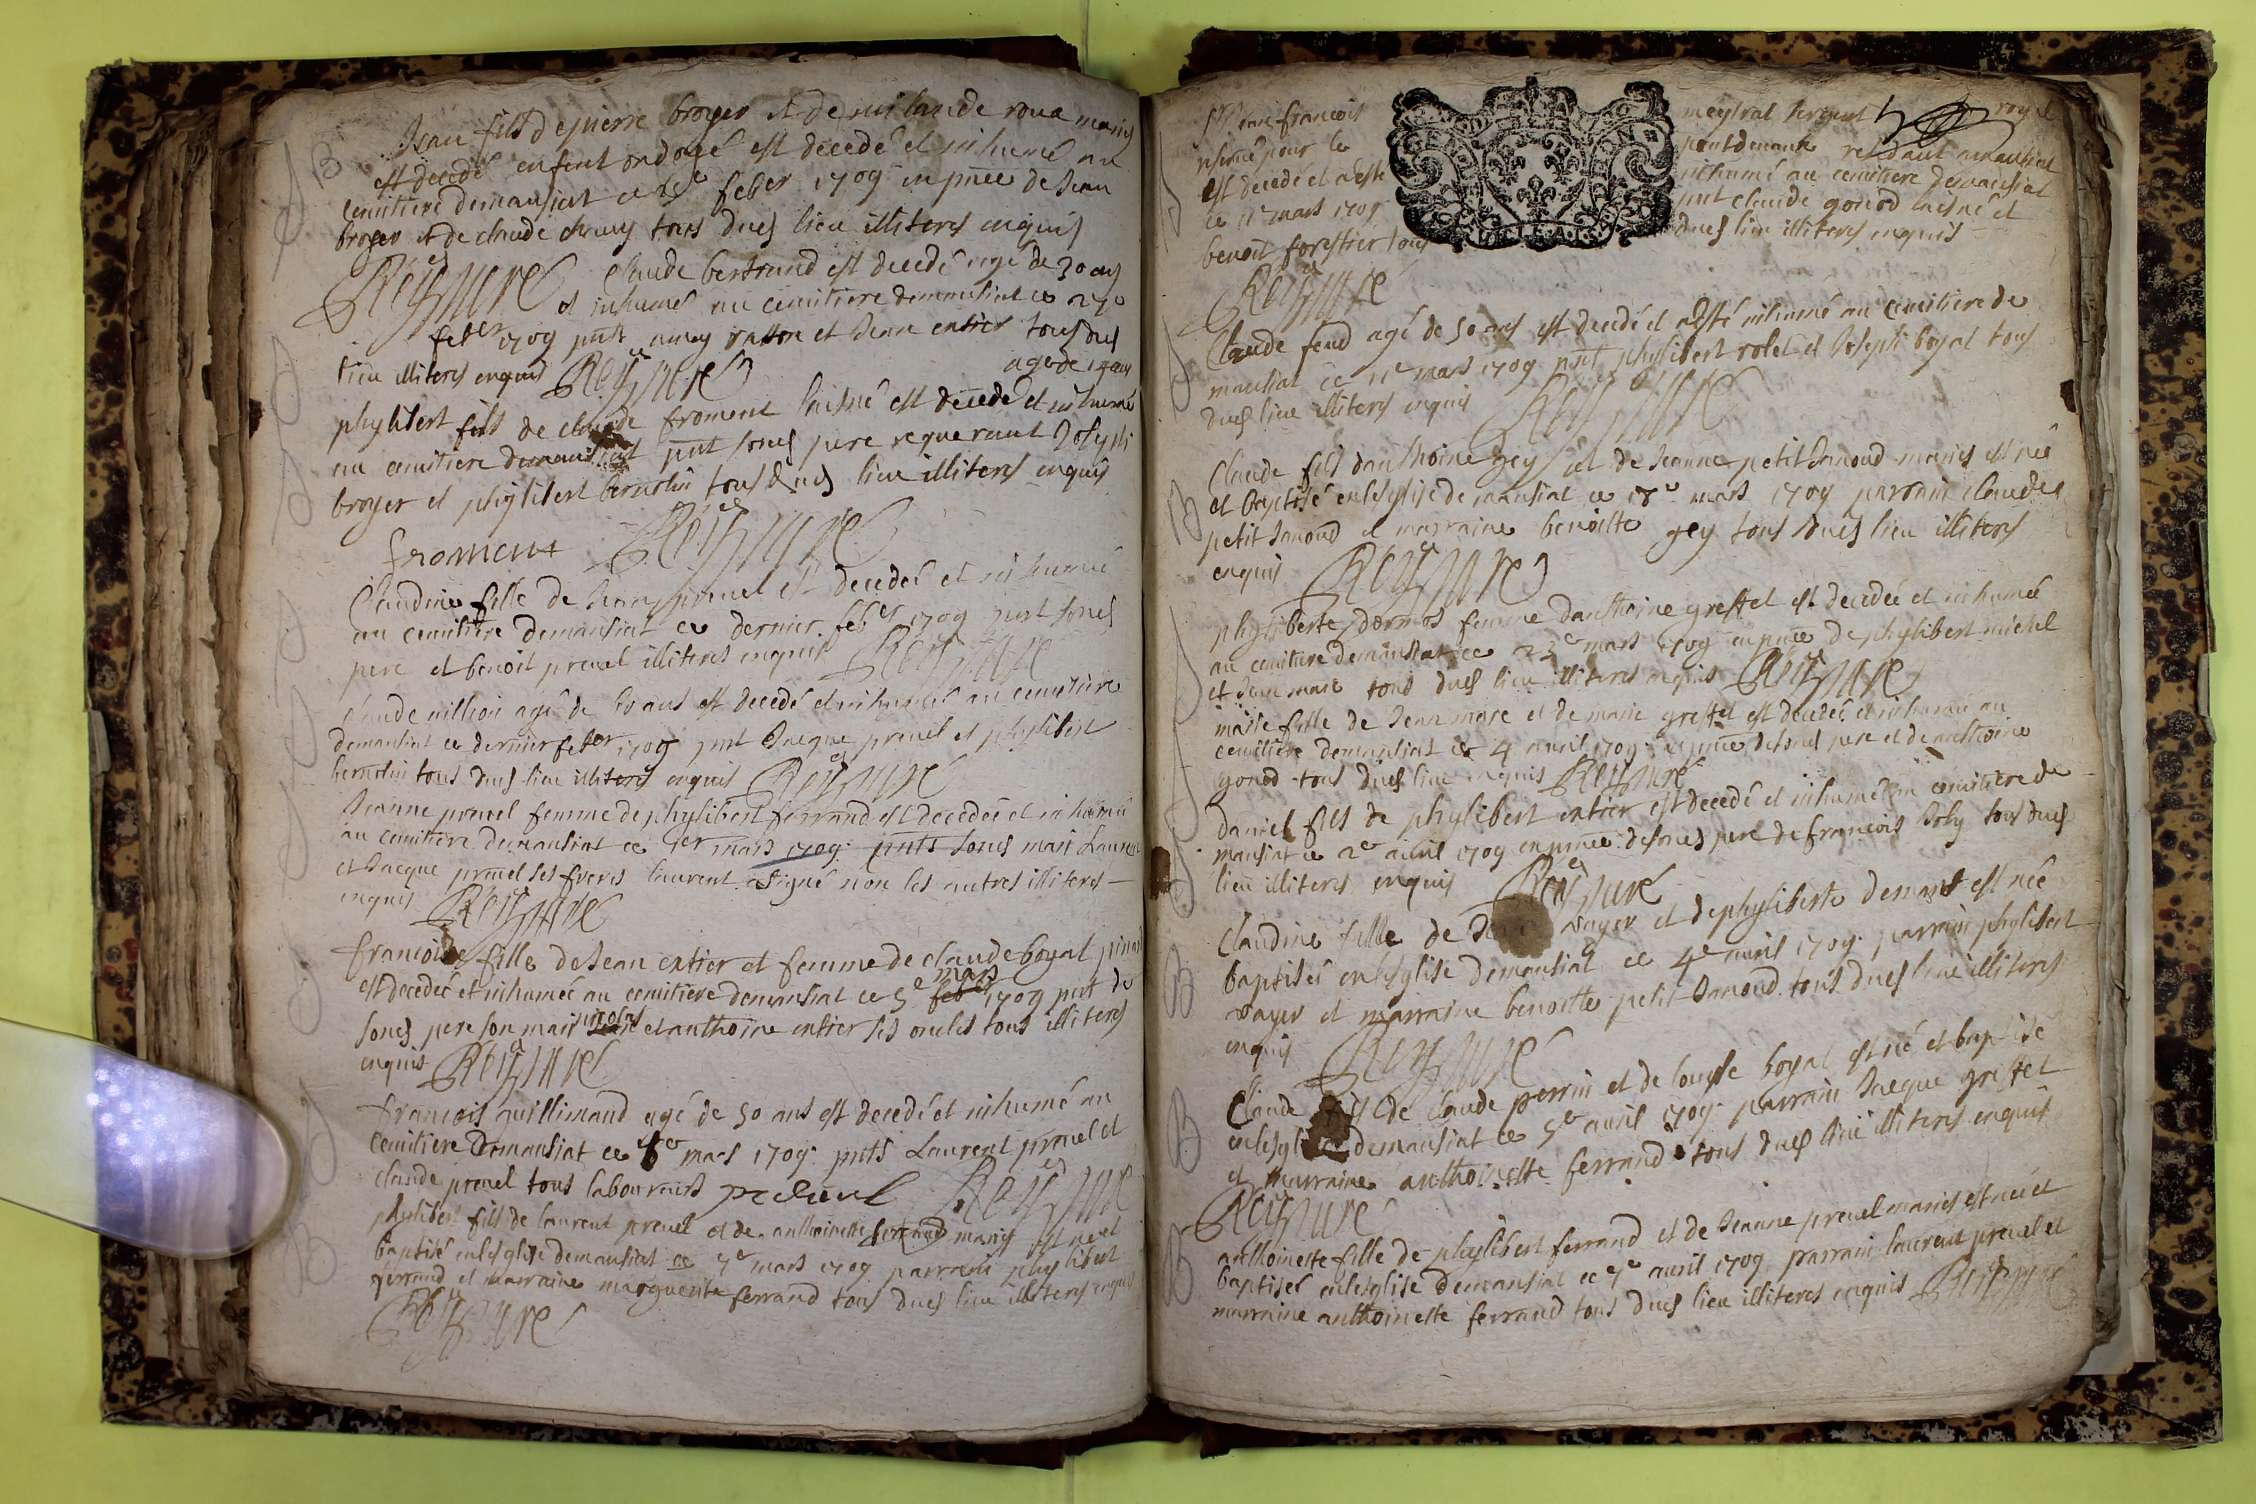 B
Jean fils de pierre broyer et de claude roux mariés
est decedé enfent ondoyé est decedé et inhumé au
cemitiere demansiat ce feber 1709 en pnce de Jean
broyer et de claude tous dues lieu illiteres enquis
Reijure claude bertrand est decedé agé de 30 ans
et inhumé au cemitiere demansiat ce 27e
feber 1709 pnt et Jean entier tous dues
lieu illiteres enquis Reijure age de ans
phylibert fils de claude froment laisné est decedé et inhumé
au cemitiere demansiat pnt sond pere requerant Joseph
broyer et phylibert bernolin tous dues lieu illiteres enquis
froment Reijure
Claudine fille de Jean preuel est decedeé et inhumeé
au cemitiere demansiat ce dernier feber 1709 pnt sond
pere et benoit preuel illiteres enquis Reijure
claude million agé de ans est decedé et inhumé au cemitiere
demansiat ce dernier feber 1709 pnt Jacque preuel et phylibert
bernolin tous dues lieu illiteres enquis Reijure
Jeanne preuel femme de phylibert ferrand est decedeé et inhumeé
au cemitiere demansiat ce 1er mars 1709 pnts sond mari Laurent
et Jacque preuel ses freres laurent a signé non les autres illiteres
enquis Reijure
francoise fille de Jean entier et femme de claude boyat
est decedeé et inhumeé au cemitiere demansiat ce 5e feber mars 1709 pnt de
sond pere son mari et anthoine entier ses oncles tous illiteres
enquis Reijure
francois guillimand agé de 50 ans est decedé et inhumé au
cemitiere demansiat ce mars 1709 pnts Laurent preuel et
claude preuel tous laboureurs preuel Reijure
phylibert fils de laurent preuel et de anthoinette ferrand mariés est né et
baptisé en lesglise demansiat ce 7e mars 1709 parrain phylibert
ferrand et marraine marguerite ferrand tous dues lieu illiteres enquis
Reijure
francois meytral sergent royal
pour le pontdevaux residant a mansiat
est decedé et a esté inhumé au cemitiere demansiat
ce 11e mars 1709 pnt claude gonod laisné et
benoit forestier tous dues lieu illiteres enquis
Reijure
Claude feud agé de 50 ans est decedé et a esté inhumé au cemitiere de
mansiat ce 11e mars 1709 pnt phylibert rolet et Joseph boyat tous
dues lieu illiteres enquis Reijure
B
Claude fils danthoine gey et de Jeanne petit Janoud mariés est né
et baptisé en lesglise de mansiat ce 18e mars 1709 parrain claude
petit Janoud et marraine benoitte gey tous dues lieu illiteres
enquis Reijure
phyliberte dormos femme danthoine greffet est decedée et inhumeé
au cemitiere demansiat ce 23e mars 1709 en pnce de phylibert michel
et Jean mare tous dues lieu illiteres enquis Reijure
marie fille de Jean mare et de marie greffet est decedeé et inhumeé au
cemitiere demansiat ce 4 avril 1709 en pnce de sond pere et de anthoine
gonod tous dues lieu enquis Reijure
Daniel fils de phylibert entier est decedé et inhumé au cemitiere de
mansiat ce 2e avril 1709 en pnce de sond pere de francois Joly tous dues
lieu illiteres enquis Reijure
B
Claudine fille de vayer et de phyliberte demars est née
baptiseé en lesglise demansiat ce 4e avril 1709 parrain phylibert
vayer et marraine benoitte petit Janoud tous dues lieu illiteres
enquis Reijure
B
Claude fils de claude perrin et de louyse boyat est né et baptisé
en lesglise demansiat ce 5e avril 1709 parrain Jacque greffet
et marraine anthoinette ferrand tous dues lieu illiteres enquis
Reijure
B
anthoinette fille de phylibert ferrand et de Jeanne preuel mariés est neé et
baptiseé en lesglise demansiat ce 7e avril 1709 parrain laurent preuel et
marraine anthoinette ferrand tous dues lieu illiteres enquis Reijure